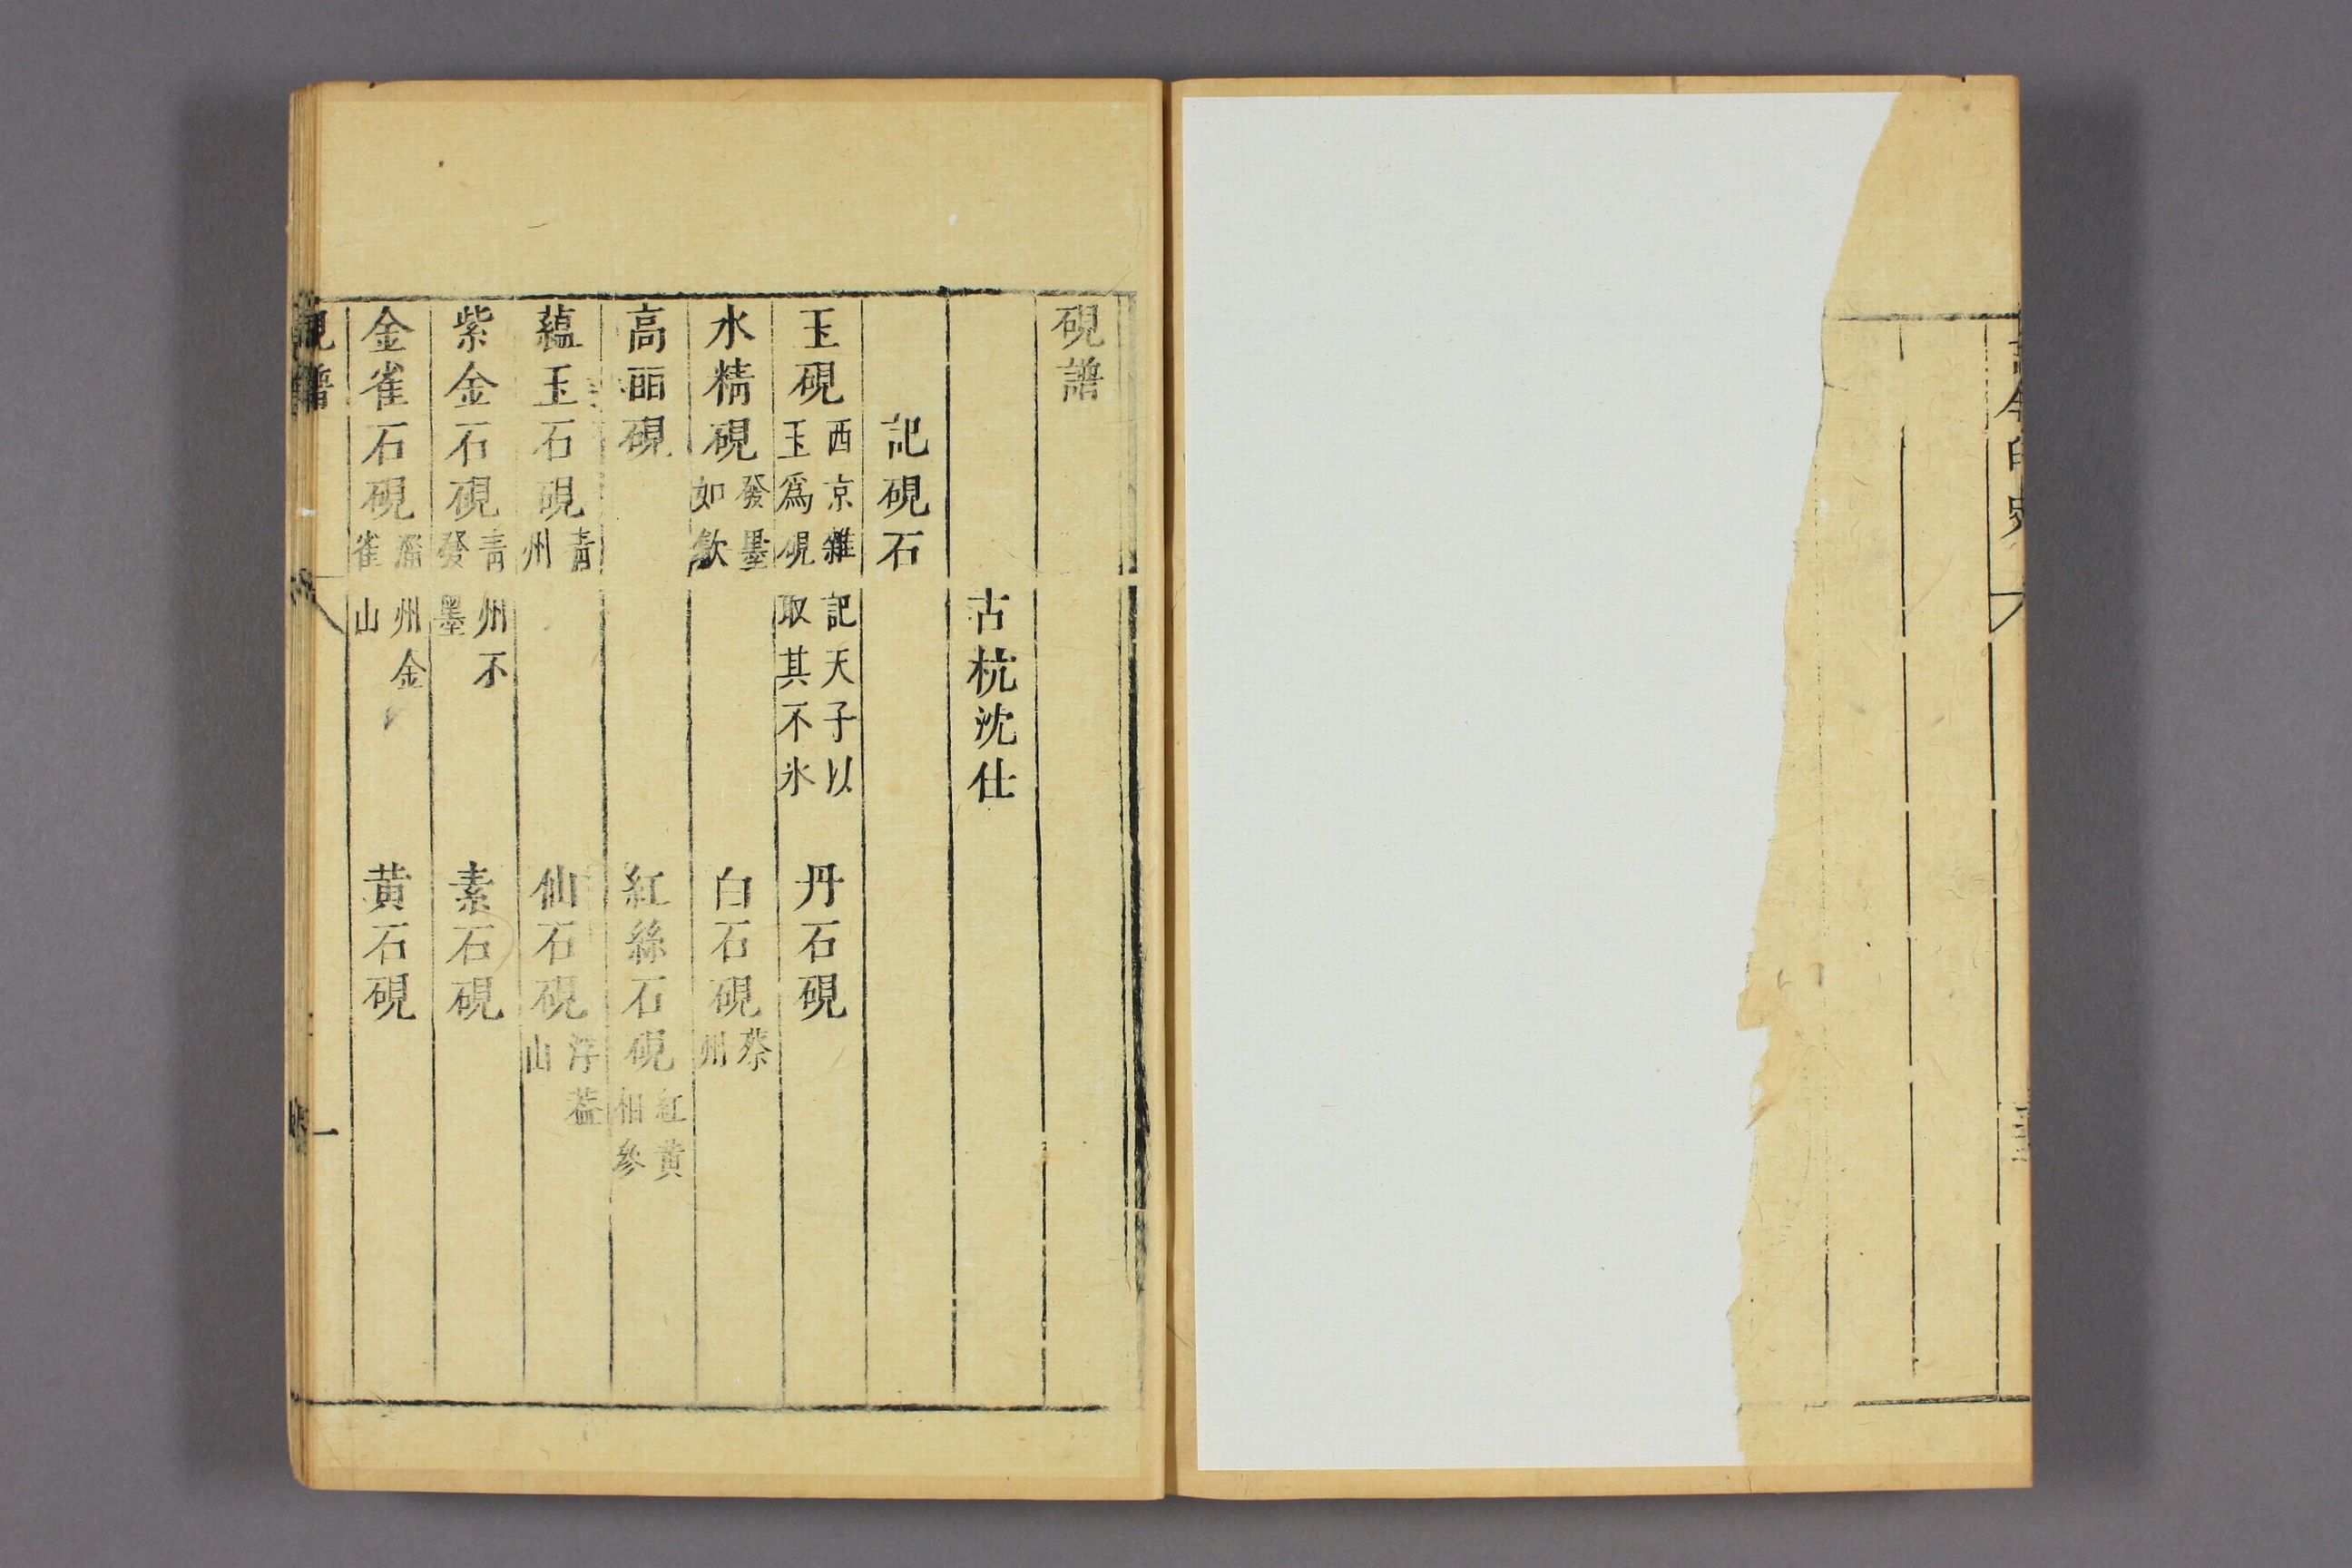 硯譜
古杭沈仕
記硯石
玉硯西京雜記天子以玉爲硯取其不氷 丹石硯
水精硯發墨如歙 白石硯蔡州
高丽硯 紅絲石硯紅黃相參
蘊玉石硯青州 仙石硯浮蓋山
紫金石硯青州不發墨 素石硯
金雀石硯淄州金雀山 黃石硯
硯譜 一